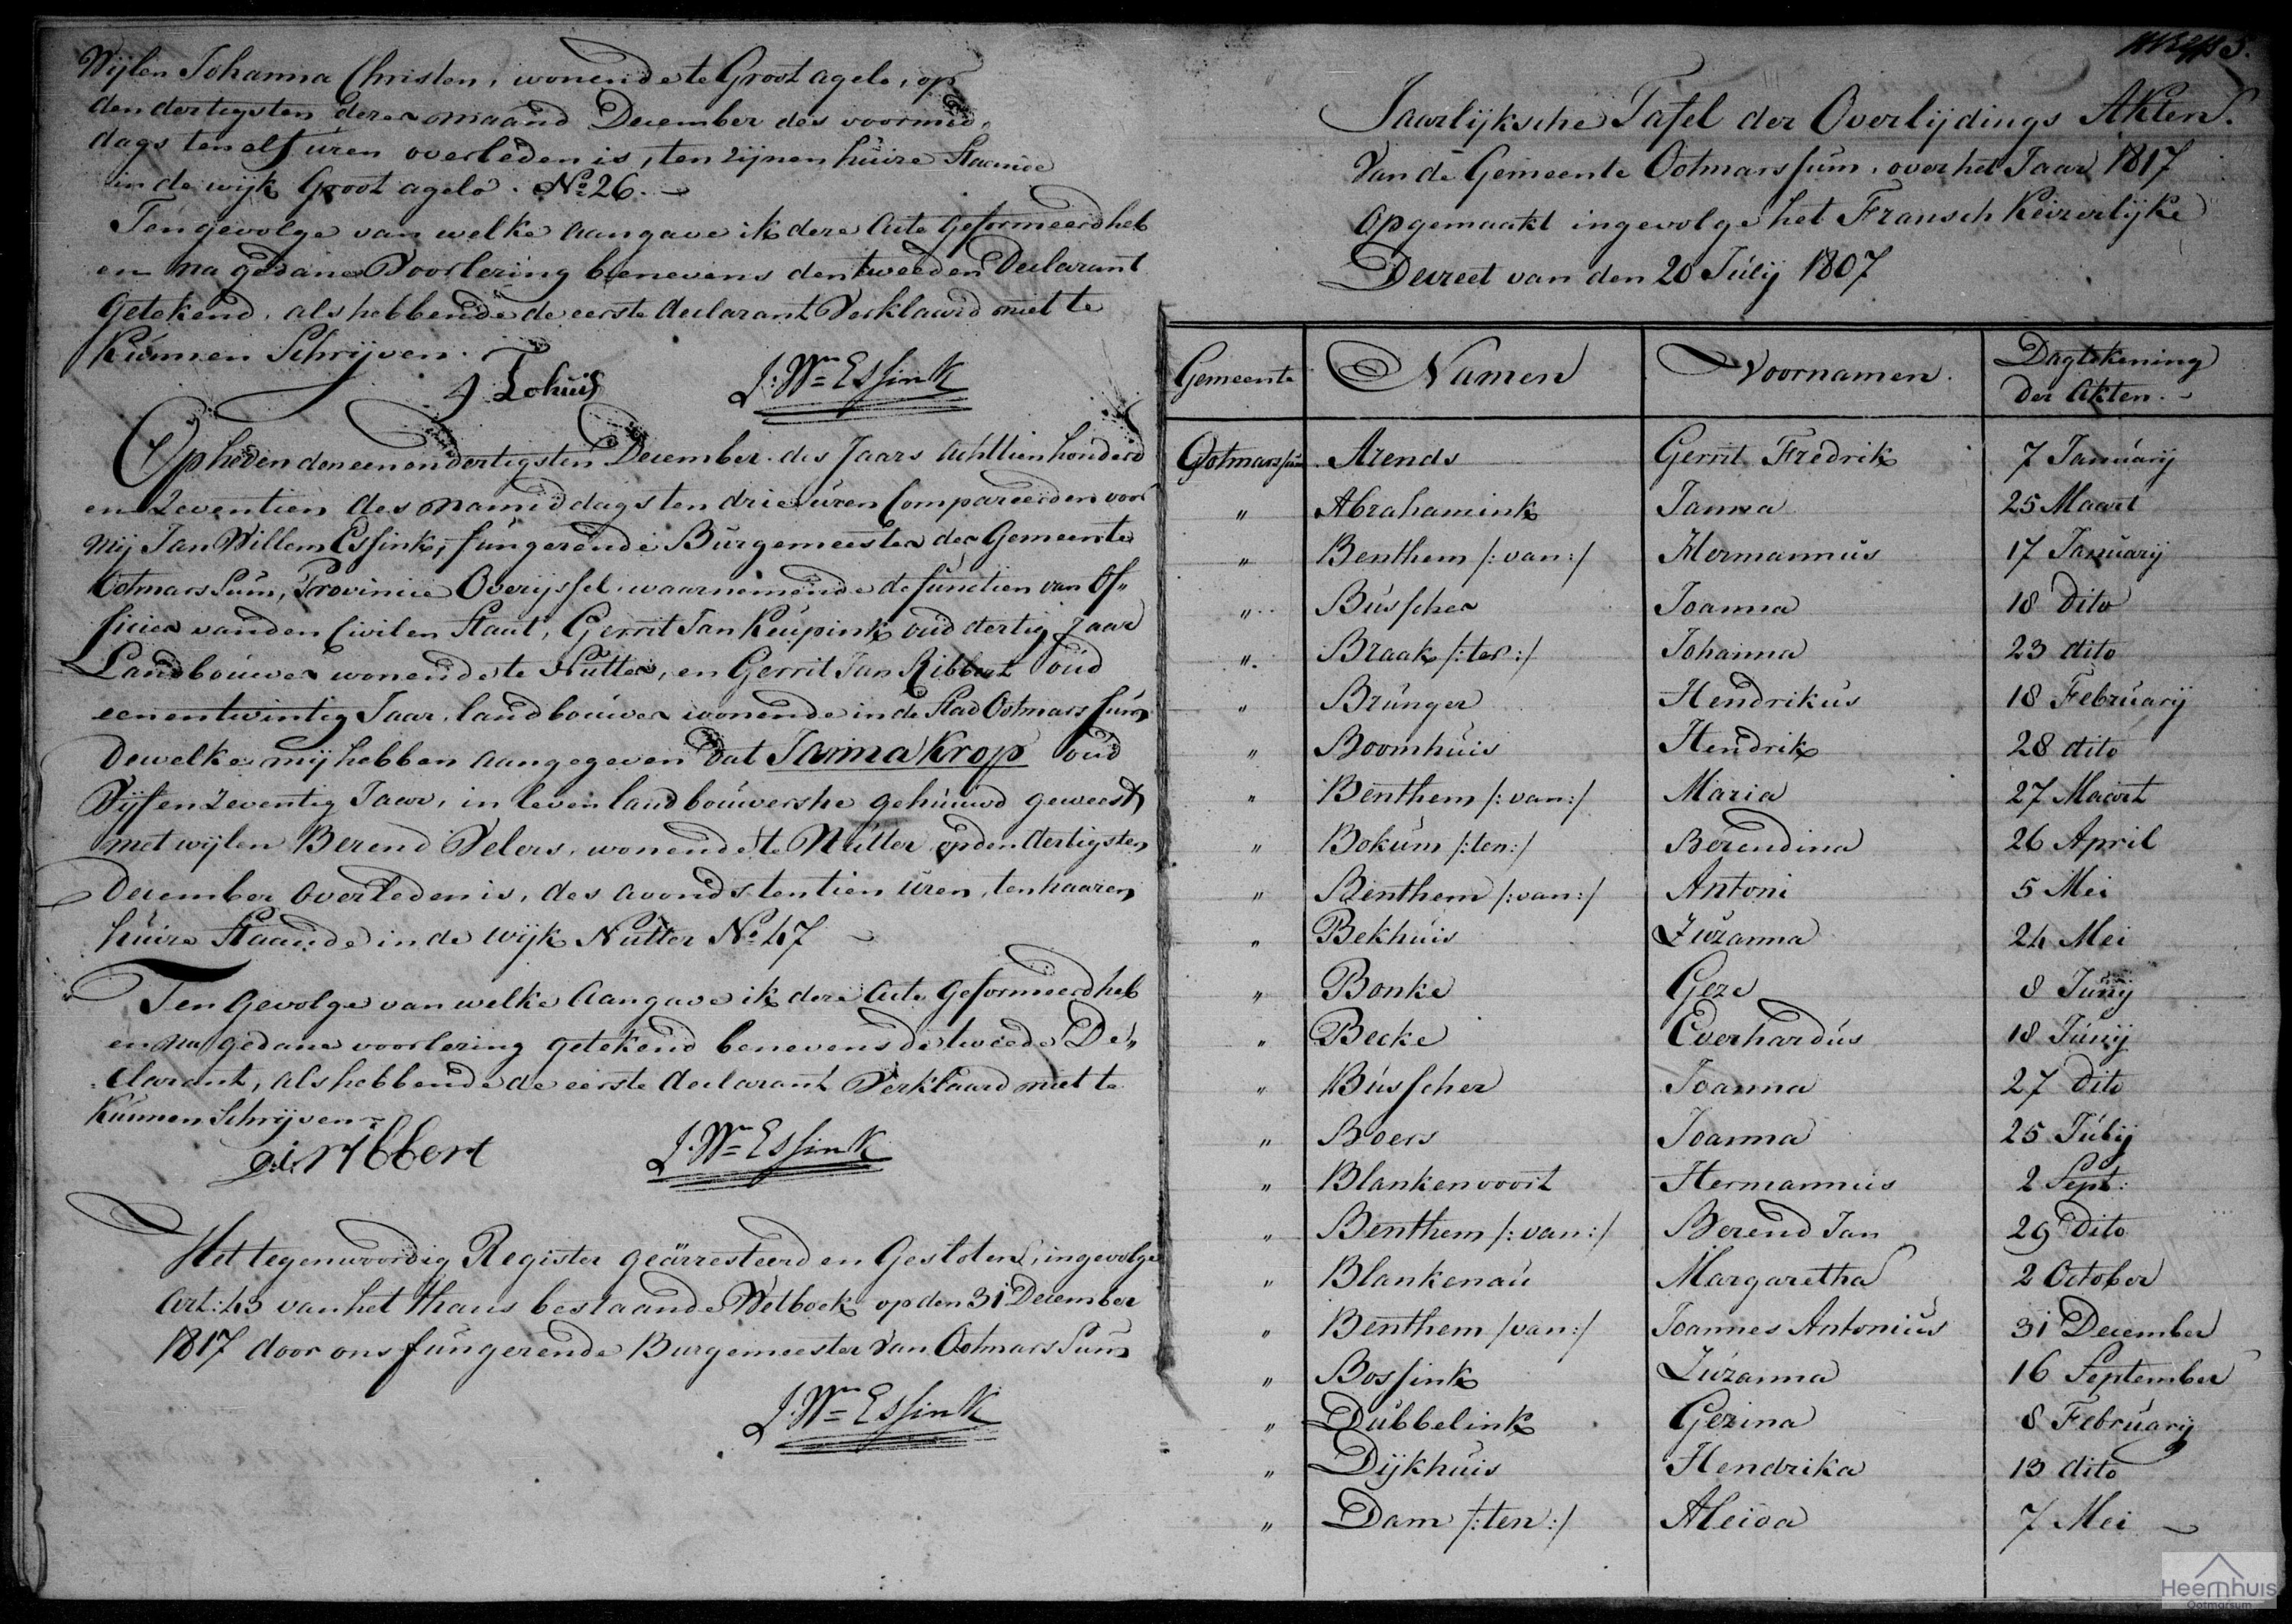 Wijlen Johanna Christen, wonende te Groot agele, op
den dertigsten dezer maand December des voormid„
dags ten elf uren overleden is, ten zijnen huize staande
in de wijk Groot agele. No 26.
Ten gevolge van welke aangave ik deze Acte geformeerd heb
en na gedane Voorlezing benevens den tweeden Declarant
Getekend, als hebbende de eerste declarant Verklaard niet te
Kunnen Schrijven.
Lohuis J: Wm Essink
Op heden den een en dertigsten December des Jaars Achttien honderd
en Zeventien des namiddags ten drie uren Compareerden voor
Mij Jan Willem Essink, fungerende Burgemeester der Gemeente
Ootmarssum, Provincie Overijssel waarnemende de functien van Of„
ficier van den Civilen Staat, Gerrit Jan Keupink oud dertig Jaar
Landbouwer wonende te Nutter, en Gerrit Jan Ribbert oud
een en twintig Jaar, landbouwer wonende in de Stad Ootmarssum
Dewelke mij hebben aangegeven Dat Janna Krop oud
Vijf en Zeventig Jaar, in leven landbouwersche gehuuwd geweest
met wijlen Berend Velers, wonende te Nutter op den dertigsten
December overleden is, des avonds ten tien uren, ten haaren
huize Staande in de wijk Nutter No 47
Ten Gevolge van welke Aangave ik deze Acte geformeerd heb
en na gedane voorlezing getekend benevens de tweede De„
clarant, als hebbende de eerste declarant Verklaard niet te
Kunnen Schrijven
ribbert J: Wm Essink
Het tegenwoordig Register geärresteerd en Gesloten, ingevolge
Art: 43 van het thans bestaande Wetboek op den 31 December
1817 door ons fungerende Burgemeester van Ootmarssum
J: Wm Essink
Jaarlijksche Tafel der Overlijdings Akten
Van de Gemeente Ootmarssum, over het Jaar 1817
Opgemaakt ingevolge het Fransch Keizerlijke
Decreet van den 20 Julij 1807
Gemeente Namen Voornamen Dagtekening der Akten.
Ootmarssum Arends Gerrit Fredrik 7 Januarij
„ Abrahamink Janna 25 Maart
„ Benthem /: van :/ Hermannus 17 Januarij
„ Busscher Joanna 18 Dito
„ Braak /: ter :/ Johanna 23 dito
„ Brunger Hendrikus 18 Februarij
„ Boomhuis Hendrik 28 dito
„ Benthem /: van :/ Maria 27 Maart
„ Bokum /: ten :/ Berendina 26 April
„ Benthem /: van :/ Antoni 5 Mei
„ Bekhuis Zuzanna 24 Mei
„ Bonke Geze 8 Junij
„ Becke Everhardus 18 Junij
„ Busscher Joanna 27 Dito
„ Boers Joanna 25 Julij
„ Blankenvoort Hermannus 2 Sept:
„ Benthem /: van :/ Berend Jan 29 Dito
„ Blankenau Margaretha 2 October
„ Benthem / van :/ Joannes Antonius 31 December
„ Bossink Zuzanna 16 September
„ Dubbelink Gezina 8 Februarij
„ Dijkhuis Hendrika 13 dito
„ Dam /: ten :/ Aleida 7 Mei
Heemhuis
Ootmarsum